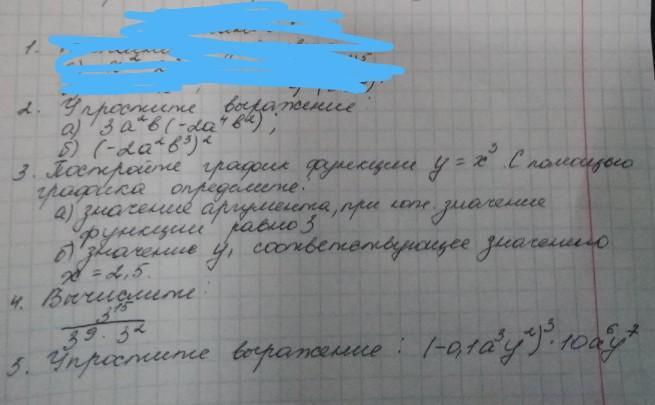 1.
2. Упростите выражение:
а) 3a²b(-2a⁴b²);
б) (-2a²b³)²
3. Постройте график функции y = x³. С помощью
графика определите:
а) значение аргумента, при кот. значение
функции равно 3
б) значение y, соответствующее значению
x = 2,5.
4. Вычислите:
3¹⁵
3⁹ · 3²
5. Упростите выражение: (-0,1a³y²)³ · 10a⁶y⁷